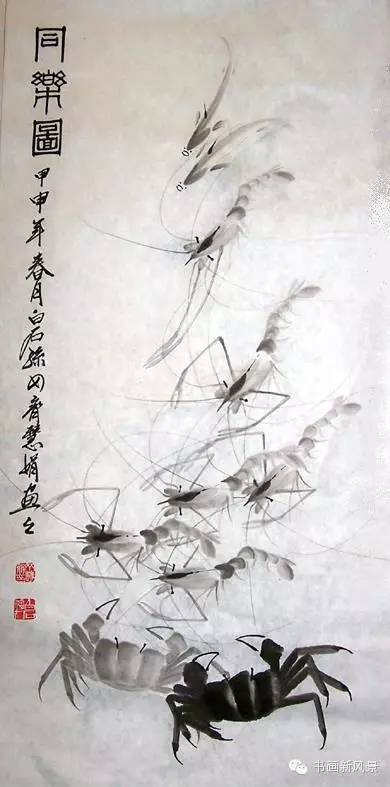 同樂圖
甲申年春月白石孫女齊慧娟畫之
书画新风景